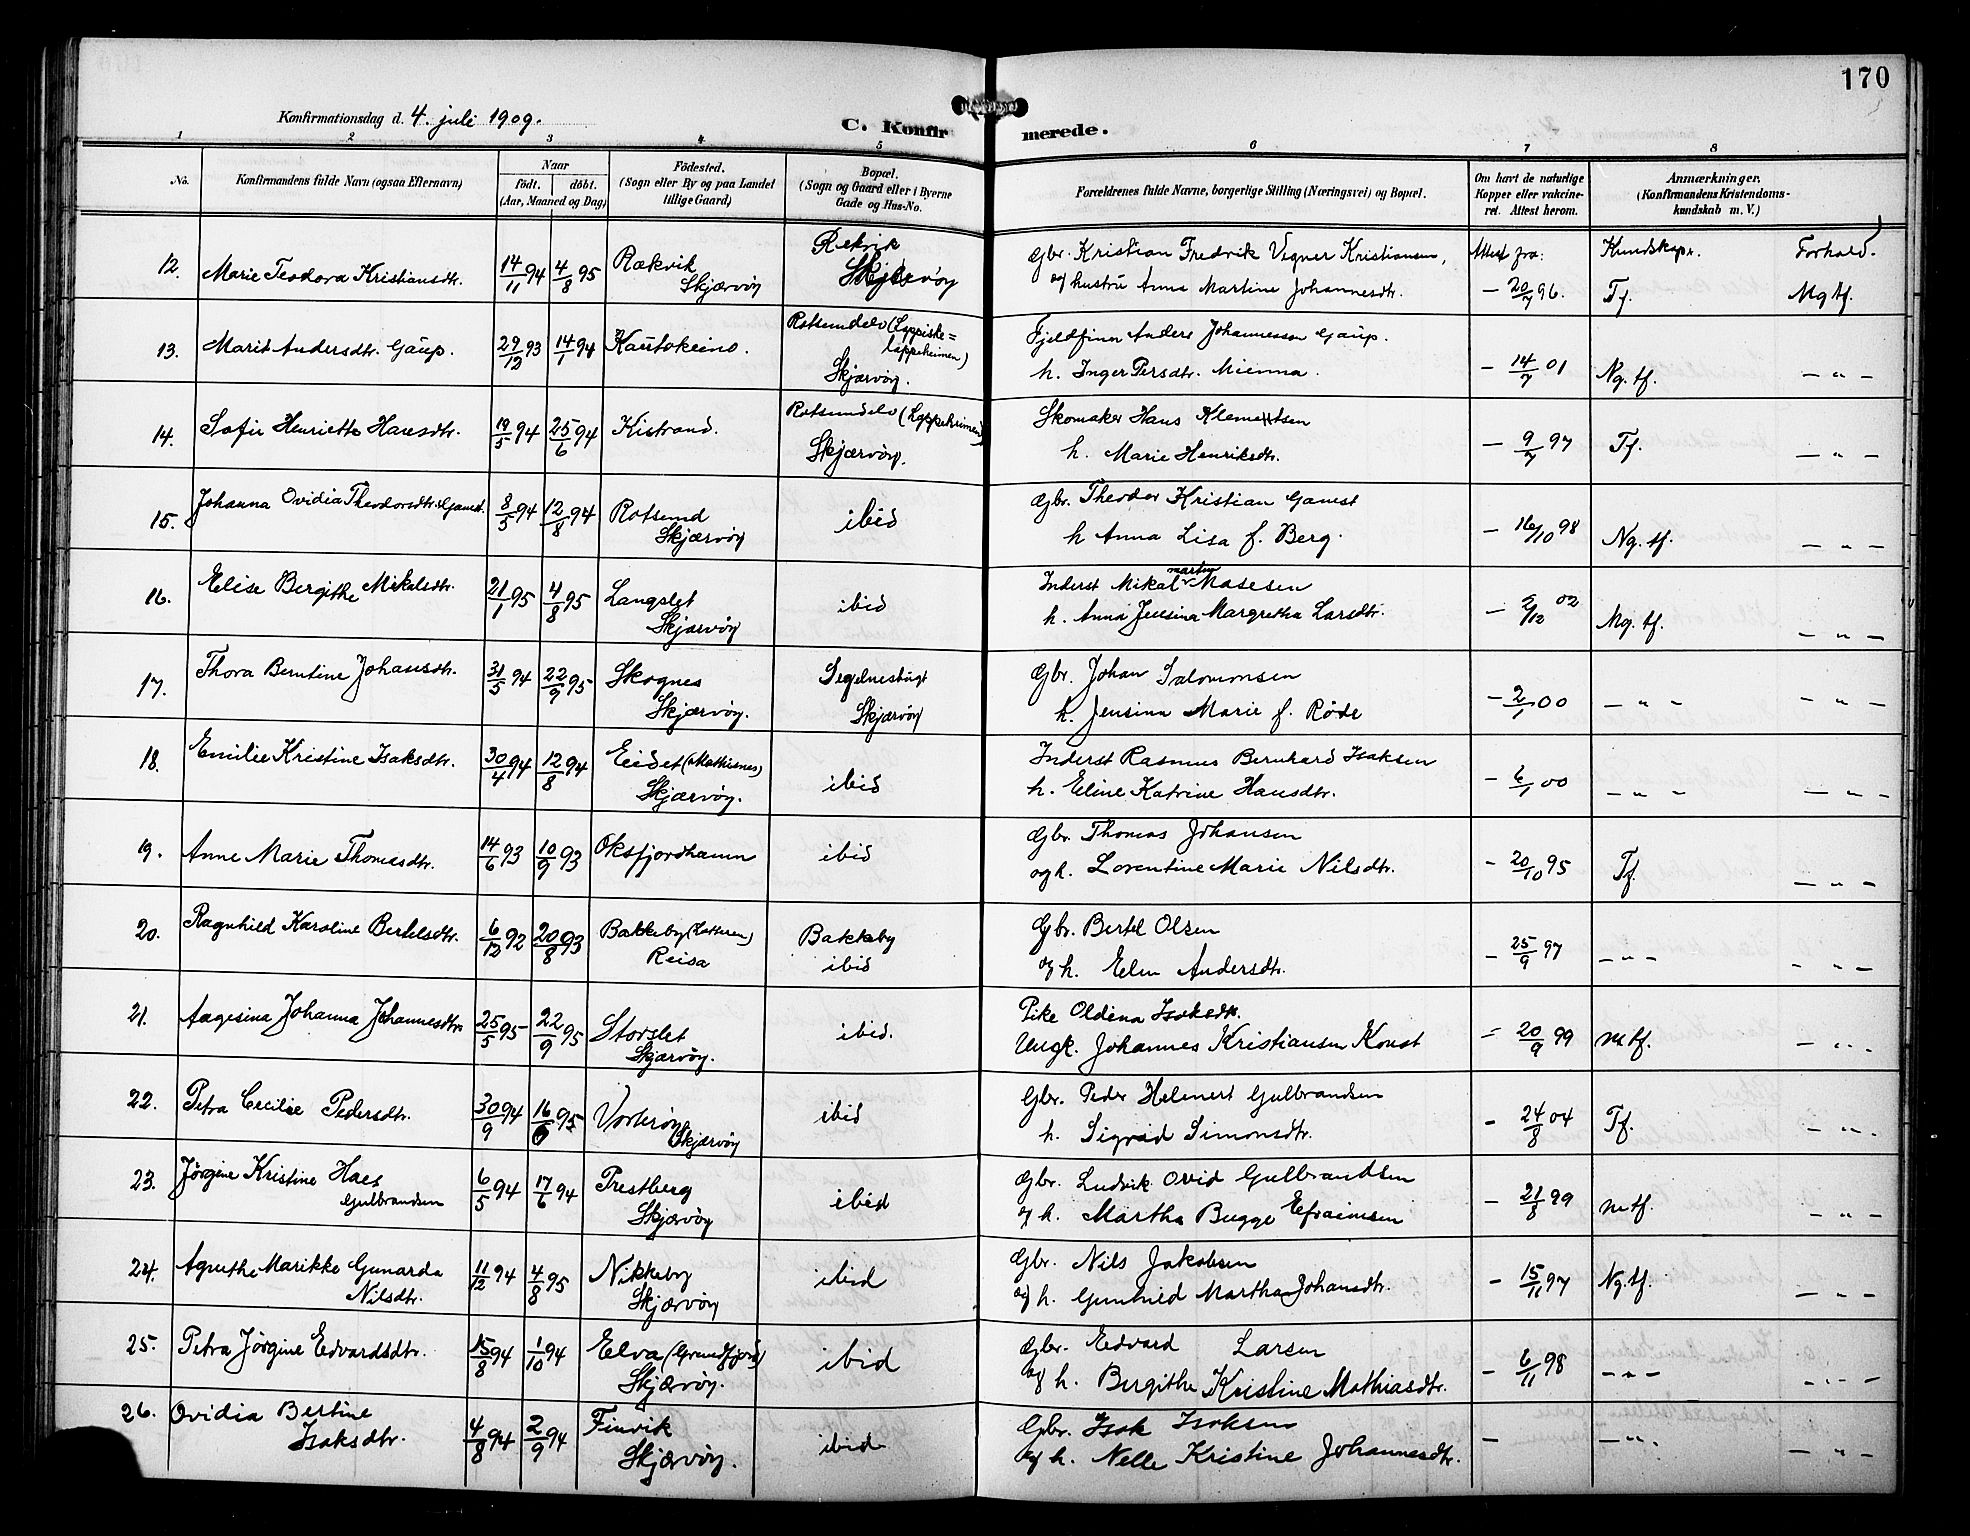 170
Konfirmationsdag d. 4. juli 1909.
C. Konfirmerede.
1 2 3 4 5 6 7 8
No.
Konfirmandens fulde Navn (ogsaa Efternavn)
Naar
født. døbt.
(Aar, Maaned og Dag)
Fødested.
(Sogn eller By og paa Landet
tillige Gaard)
Bopæl.
(Sogn og Gaard eller i Byerne
Gade og Hus-No.
Forældrenes fulde Navne, borgerlige Stilling (Næringsvei) og Bopæl.
Om havt de naturlige
Kopper eller vakcine-
ret. Attest herom.
Anmærkninger.
(Konfirmandens Kristendoms-
kundskab m. V.)
Attest fra: Kundskaper. Forhold.
12. Marie Teodora Kristiansdtr. 14/11 94 4/8 95 Rækvik
Skjærvøy
Rekvik
Skjærvøy
Gbr. Kristian Fredrik Vigner Kristiansen,
og hustru Anna Martine Johannesdtr. – 20/7 96. Tf. Mg tf.
13. Marit Andersdtr. Gaup. 29/12 93 14/1 94 Kautokeino.
Rotsundelv
Skjærvøy.
Fjeldfinn Anders Johannessen Gaup.
h. Inger Persdtr. Mienna. – 14/7 01 Ng. tf. – " –
14. Sofie Henriette Hansdtr. 19/5 94 25/6 94 Kistrand.
Rotsundelv (Lappeheimen)
Skjærvøy.
Skomaker Hans Klemetsen
h. Marie Henriksdtr. – 9/7 97 Tf. – " –
15. Johanna Ovidia Theodorsdtr. Gamst. 8/5 94 12/8 94 Rotsund
Skjærvøy
ibid
Gbr. Theodor Kristian Gamst
h Anna Lisa f. Berg. – 16/10 98 Ng. tf. – " –
16. Elise Bergithe Mikalsdtr. 21/1 95 4/8 95 Langslet
Skjærvøy
ibid
Inderst Mikal Martin Mosesen
h. Anna Jensina Margretha Larsdtr. – 2/12 02 Mg. tf. – " –
17. Thora Berntine Johansdtr. 31/5 94 22/9 95 Skognes
Skjærvøy.
Segelnesbugt
Skjærvøy
Gbr. Johan Salomonsen
h. Jensina Marie f. Røde – 2/1 00 – " – – " –
18. Emilie Kristine Isaksdtr. 30/4 94 12/8 94 Eidet (Mathisnes)
Skjærvøy.
ibid
Inderst Rasmus Bernhard Isaksen
h. Eline Katrine Hansdtr. – 6/1 00 – " – – " –
19. Anne Marie Thomasdtr. 14/6 93 10/9 93 Oksfjordhamn
ibid
Gbr. Thomas Johansen
og h. Lorentine Marie Nilsdtr. – 20/10 95 Tf. – " –
20. Ragnhild Karoline Bertelsdtr. 6/12 92 20/8 93 Bakkeby
Reisa
Bakkeby
ibid
Gbr. Bertel Olsen
og h. Elen Andersdtr. – 25/9 97 – " – – " –
21. Aagesina Johanna Johannesdtr. 25/5 95 22/9 95 Storslet
Skjærvøy.
ibid.
Pike Oldena Isaksdtr.
Ungk. Johannes Kristiansen Konst – 20/9 99 mtf. – " –
22. Petra Cecilie Pedersdtr. 30/9 94 16/6 95 Vorterøy
Skjærvøy
ibid
Gbr. Peder Helmert Gulbrandsen
h. Sigrid Simonsdtr. – 24/8 04 Tf. – " –
23. Jørgine Kristine Haes
Gulbrandsen
6/5 94 17/6 94 Prestberg
Skjærvøy
ibid
Gbr. Ludvik Ovid Gulbrandsen
og h. Martha Bugge Efraimsen – 21/8 99 mtf. – " –
24. Agnethe Marikke Gunarda
Nilsdtr.
11/12 94 4/8 95 Nikkeby
Skjærvøy
ibid
Gbr. Nils Jakobsen
og h. Gunhild Martha Johansdtr. – 15/11 97 Ng. tf. – " –
25. Petra Jørgine Edvardsdtr. 15/8 94 1/10 94 Elva (Grundfjord)
Skjærvøy.
ibid
Gbr. Edvard Larsen
og h. Bergithe Kristine Mathiasdtr. – 6/11 98 – " – – " –
26. Ovidia Bertine
Isaksdtr.
4/8 94 2/9 94 Finvik
Skjærvøy.
ibid
Gbr. Isak Isaksen
og h. Nelle Kristine Johannesdtr. – – " – – " –